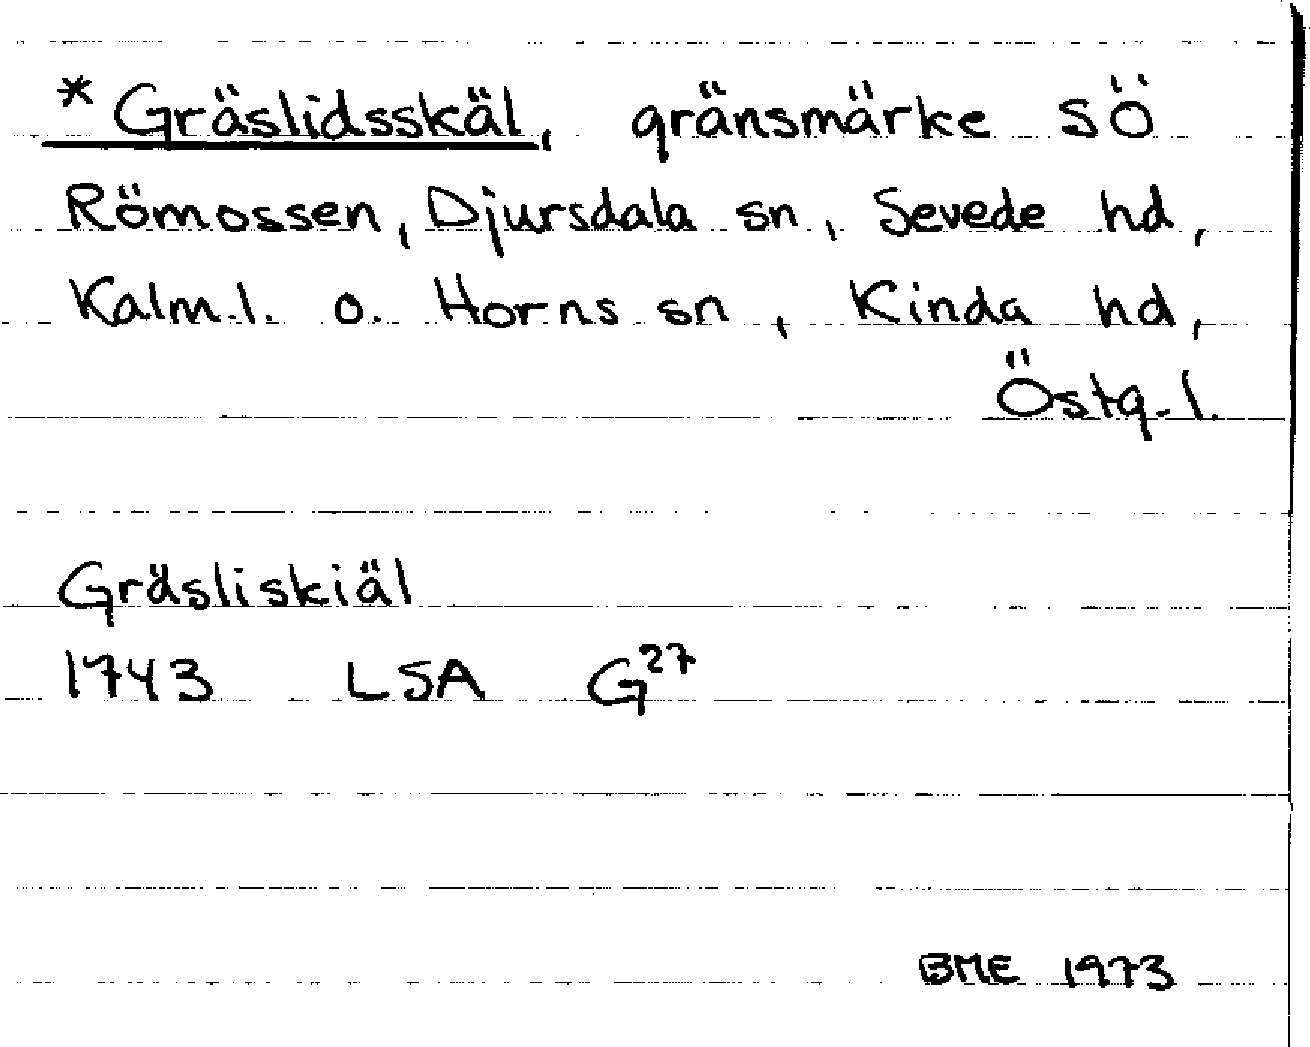 * Gräslidsskäl, gränsmärke SÖ
Römossen, Djursdala sn, Sevede hd,
Kalm.l. o. Horns sn, Kinda hd,
Östg.l.
Gräsliskiäl
1743 LSA G²⁷
BME 1973